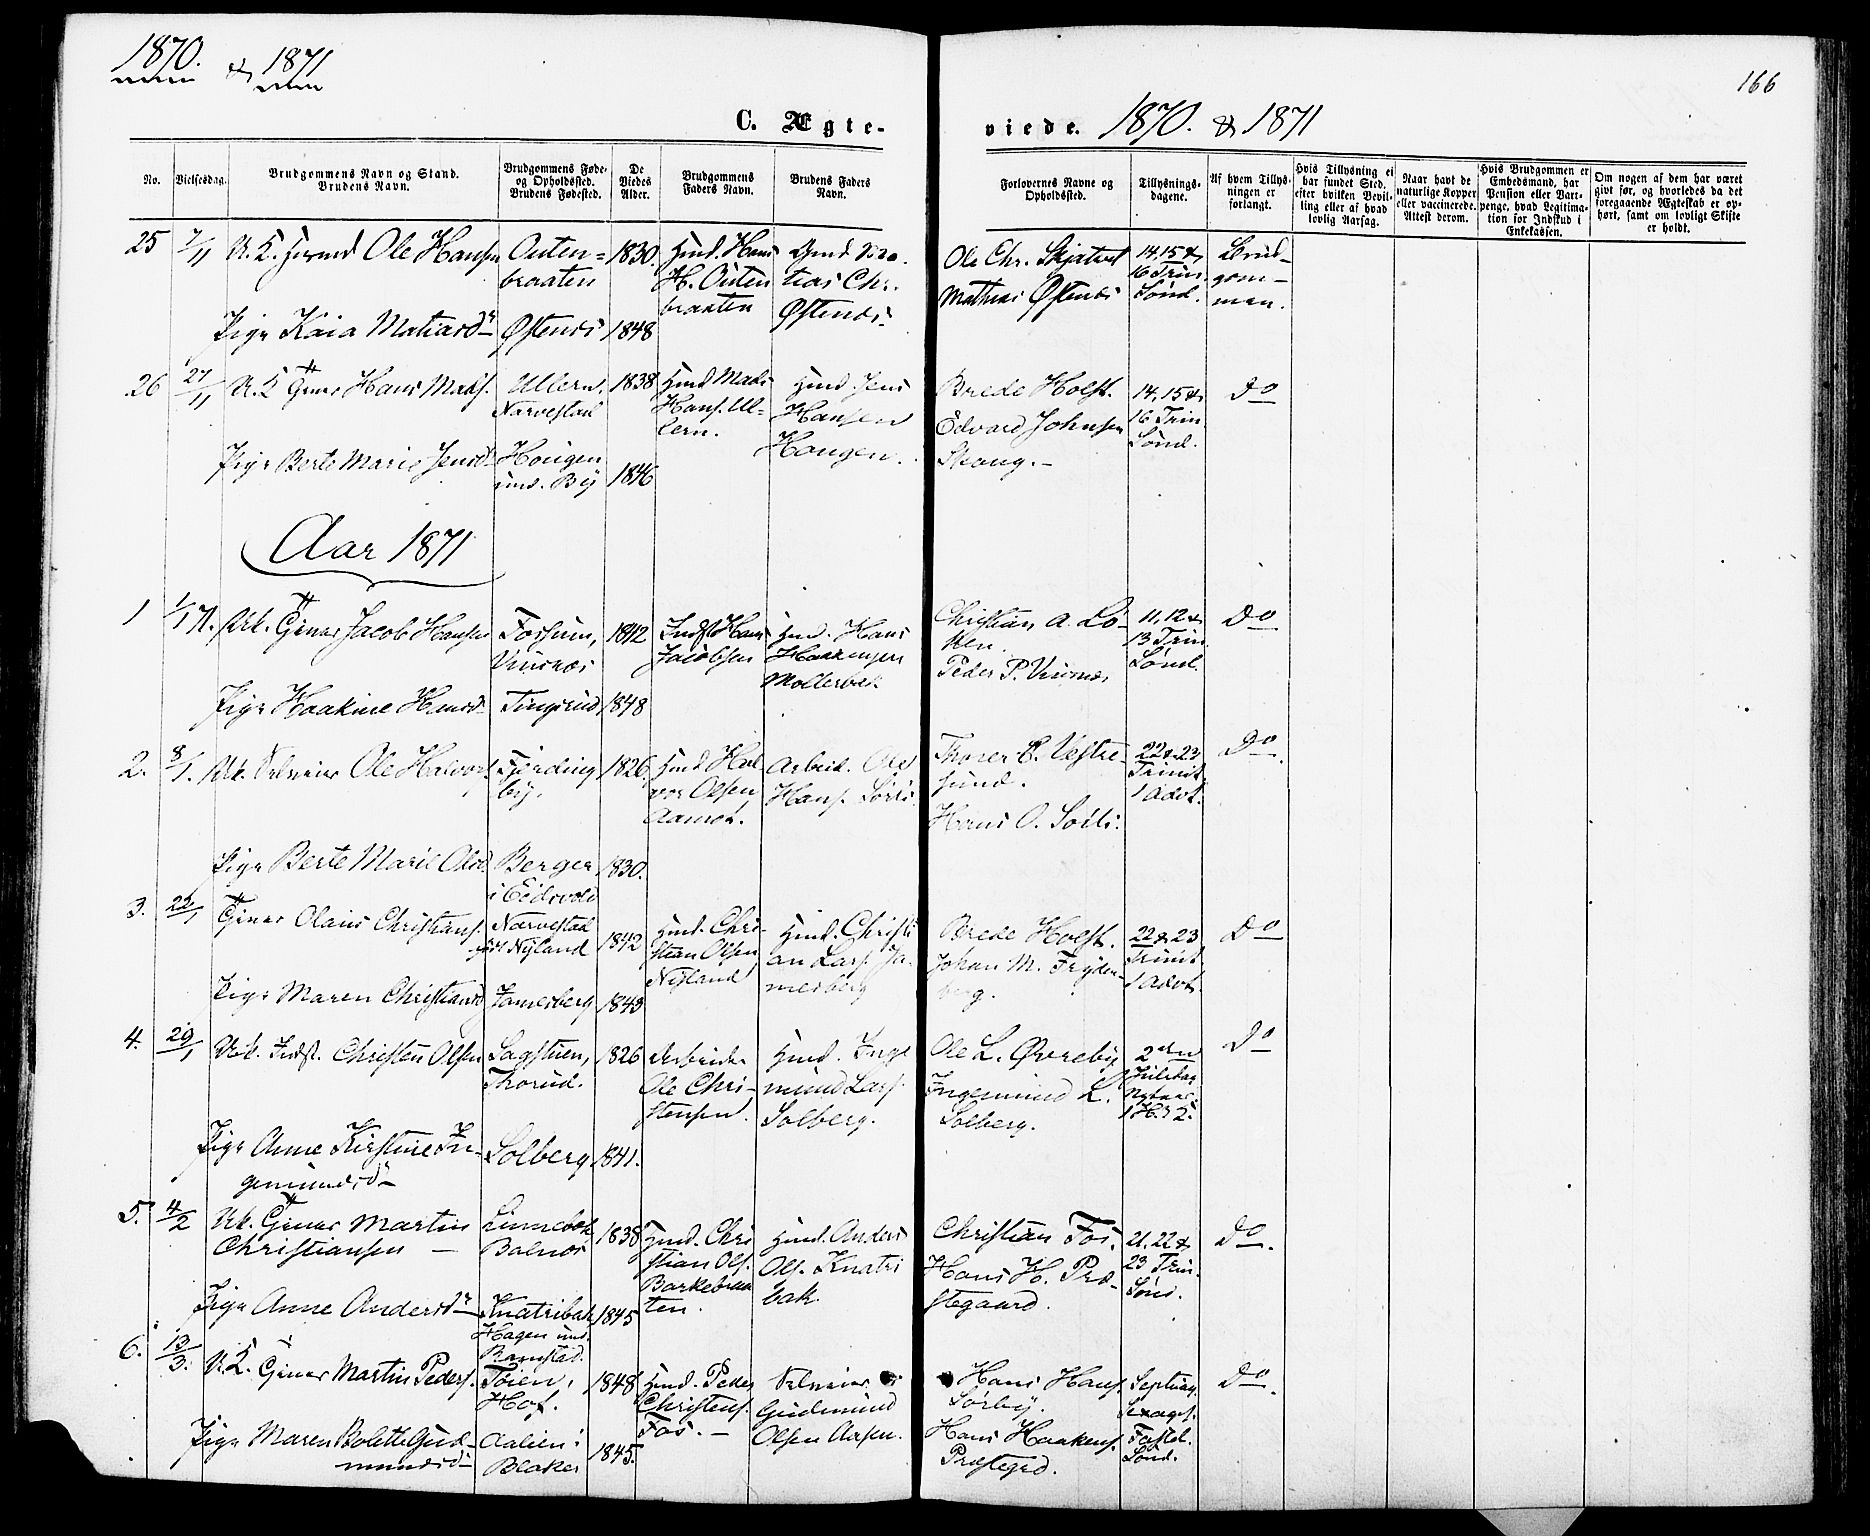 1870. & 1871
166
C. Ægte-
viede. 1870. & 1871
No.
Vielsesdag.
Brudgommens Navn og Stand.
Brudens Navn.
Brudgommens Føde-
og Opholdssted.
Brudens Fødested.
De
Viedes
Alder.
Brudgommens
Faders Navn.
Brudens Faders
Navn.
Forlovernes Navne og
Opholdssted.
Tillysnings-
dagene.
Af hvem Tillys-
ningen er
forlangt.
Hvis Tillysning ei
har fundet Sted,
efter hvilken Bevil-
ling eller af hvad
lovlig Aarsag.
Naar havt de
naturlige Kopper
eller vaccinerede.
Attest derom.
Hvis Brudgommen er
Embedsmand, har
Pension eller Vart-
penge, hvad Legitima-
tion for Indskud i
Enkekassen.
Om nogen af dem har været
givt før, og hvorledes da det
foregaaende Ægteskab er op-
hørt, samt om lovligt Skifte
er holdt.
25 7/11 U.K. Ole Hansen
Outen=
braaten
1830.
Huusmd. Hans
H. Outen
braaten
tias Chr.
Østenøs.
Ole Chr. Skjatvet
Mathias Østenøs
14, 15 &
16 Trin.
Sønd.
Brud-
gom-
men.
Pige Kaia Matiasdr
Østenøs
1848
26 27/11 U.K. Tjener Hans Mads.
Ullern,
Narvestad
1838
Huusmd. Mads
Hans. Ul-
lern.
Huusmd. Jens
Hansen
Haugen.
Brede Holst.
Edvard Johnsen
Skoug.-
14, 15 &
16 Trin.
Sønd.
Do
Pige Berte Marie Jensd.
Hougen
und. By
1846
Aar 1871
1 1/1 71. Uk. Tjener Jacob Hansen
Fossum,
1842
Indst. Hans
Jacobsen
Huusmd. Hans
Møllerbak
Christian A. Lø-
ken.
Peder P.
11, 12 &
13 Trin.
Sønd.
Do
Pige Haakine Hansd.
Tingsrud
1848
2. 8/1. Uk. Selveier Ole Halvors.
Fjerding
by.
1826.
Huusmd. Hal
vor Olsen
Aamot.
Arbeid. Ole
Hans. Sørli.
Thorer P. Vestre-
sund.
Hans O. Sørli.
22 & 23
Trinit.
1 Advt.
Do.
Pige Berte Marie Olsd.
Berger
i Eidsvold
1830.
3. 22/1 Tjener Olaus Christians.
Narvestad
før Nyland
1842
Huusmd. Chri-
stian Olsen
Nyland
Huusmd. Christi
an Lars. Ja-
merberg
Brede Holst.
Johan M. Fryden-
berg.
22 & 23
Trinit
1 Advt.
Do
Pige Maren Christiansd.
Jamerberg
1843
4. 29/1 Uk. Indst. Christen Olsen
Sagstuen,
Thorud.
1826
Arbeider
Ole Chri-
stensen.
Huusmd. Inge
mund Lars.
Solberg.
Ole L. Øvreby
Ingemund L.
Solberg.
2den
Juledag
Nytaar
Do
Pige Anne Kirstine In-
gemundsdr
Solberg
1841.
5. 4/2 Uk. Tjener Martin
Christiansen
Linnebak
Bolnøs
1838
Huusmd. Chri
stian Ols.
Barkebraa
ten.
Huusmd. Anders
Ols. Knatri
bak.
Christian Fos.
Hans H. Præ-
stegaard.
21, 22 &
23 Trin.
Sønd.
Do.
Pige Anne Andersdr
Knatribak
Hagen und.
Ramstad.
1845
6. 13/3. U.K. Tjener Martin Peders.
Toien,
Hof.
1848
Huusmd. Peder
Christens.
Fos.-
Selveier
Gudmund
Olsen Aasen.
Hans Hans.
Sørby.
Hans Haakens.
Præstegrd.
Septuag.
Sexages.
Fastel.
Sønd.
Do.
Pige Maren Bolette Gud-
mundsd.
Aalien i
Blaker
1845.